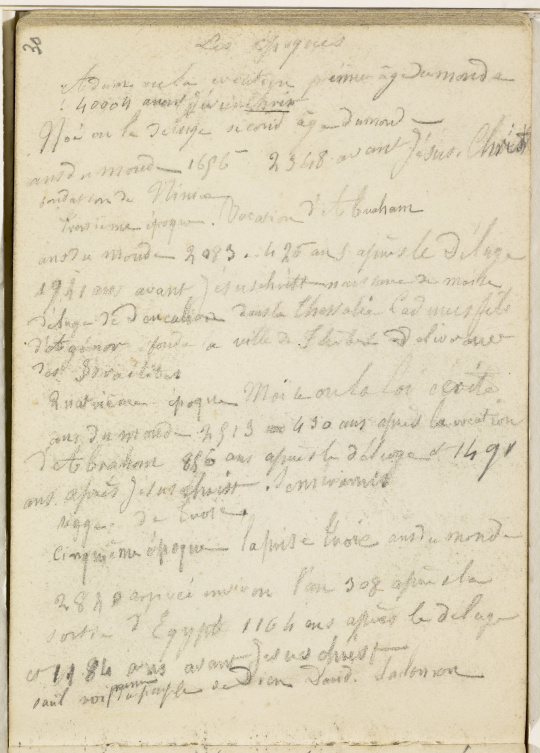 30
Les époques
Adam ou la création première âge du monde
40004 avant Jésus christ
Noé ou le Déluge second âge du monde
ans du monde 1656 2348 avant Jésus. Christ
fondation de Ninive
troisième époque. Vocation d'Abraham
ans du monde 2083.. 426 ans après le Déluge
1921 ans avant Jésuschritt naissance de moise
déluge de Deucalion dans la Thessalie Cadmus fils
d'Agénor fonde la ville de Thebes Délivrance
des Israelites
Quatrième époque Moise ou la loi écrite
ans du monde 2513 430 ans après la vocation
d'Abraham 856 ans après le déluge et 1491
ans après Jesus Christ.
de Troie
Cinquième époque la prise Troie ans du monde
2820 arrivée environ l'an 308 après la
sortie d'Egypte 1164 ans après le déluge
et 1184 ans avant Jesus christ
saül roi premier du peuple de Dieu David. Salomon